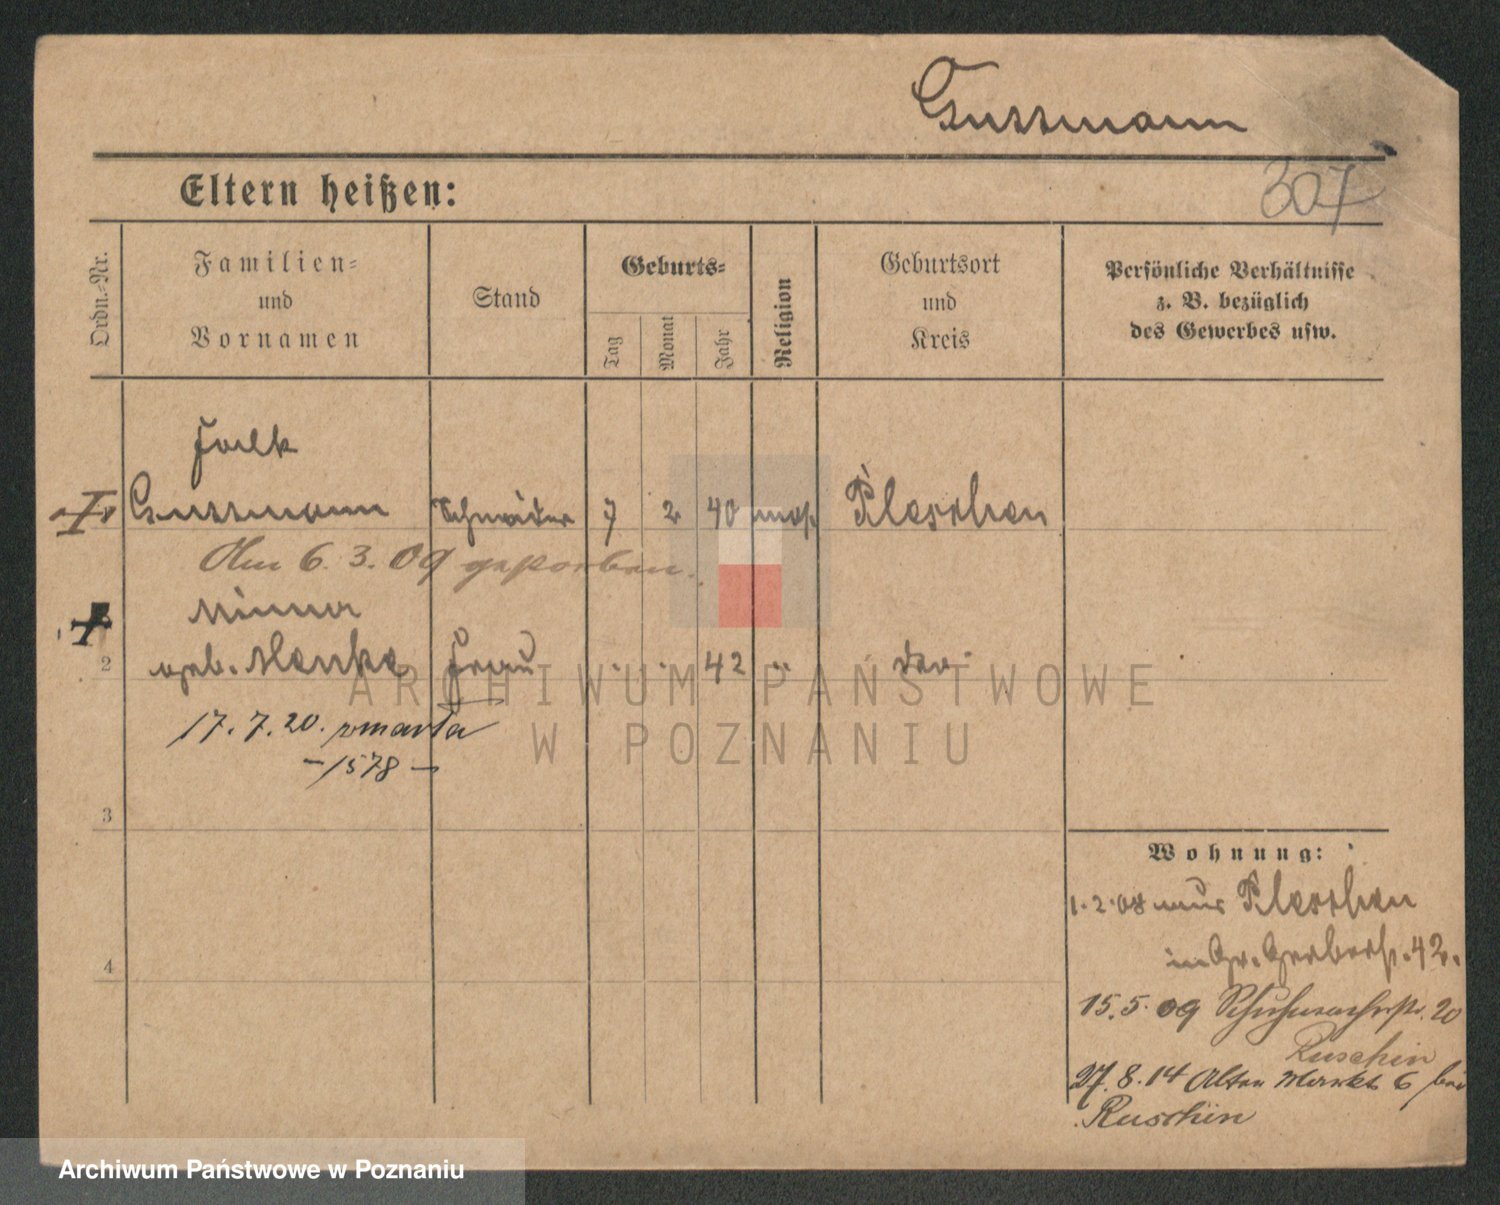 Gussmann
307
Eltern heißen:
Ordn.-Nr.
Familien-
und
Vornamen
Stand
Geburts-
Tag
Monat
Jahr
Religion
Geburtsort
und
Kreis
Persönliche Verhältnisse
z. B. bezüglich
des Gewerbes usw.
Falk
Gussmann Schneider 7 2 40 mos. Pleschen
Am 6. 3. 09 gestorben.
Minna
2 geb. Manke Frau 42 " do.
17. 7. 20. zmarła
- 1578 -
3
4
Wohnung:
1. 2. 08 aus Pleschen
in Gr. Gerberstr. 42.
15. 5. 09 Schuhmacherstr. 20
Ruschin
27. 8. 14 Alter Markt 6 bei
Ruschin
ARCHIWUM PAŃSTWOWE
W POZNANIU
Archiwum Państwowe w Poznaniu